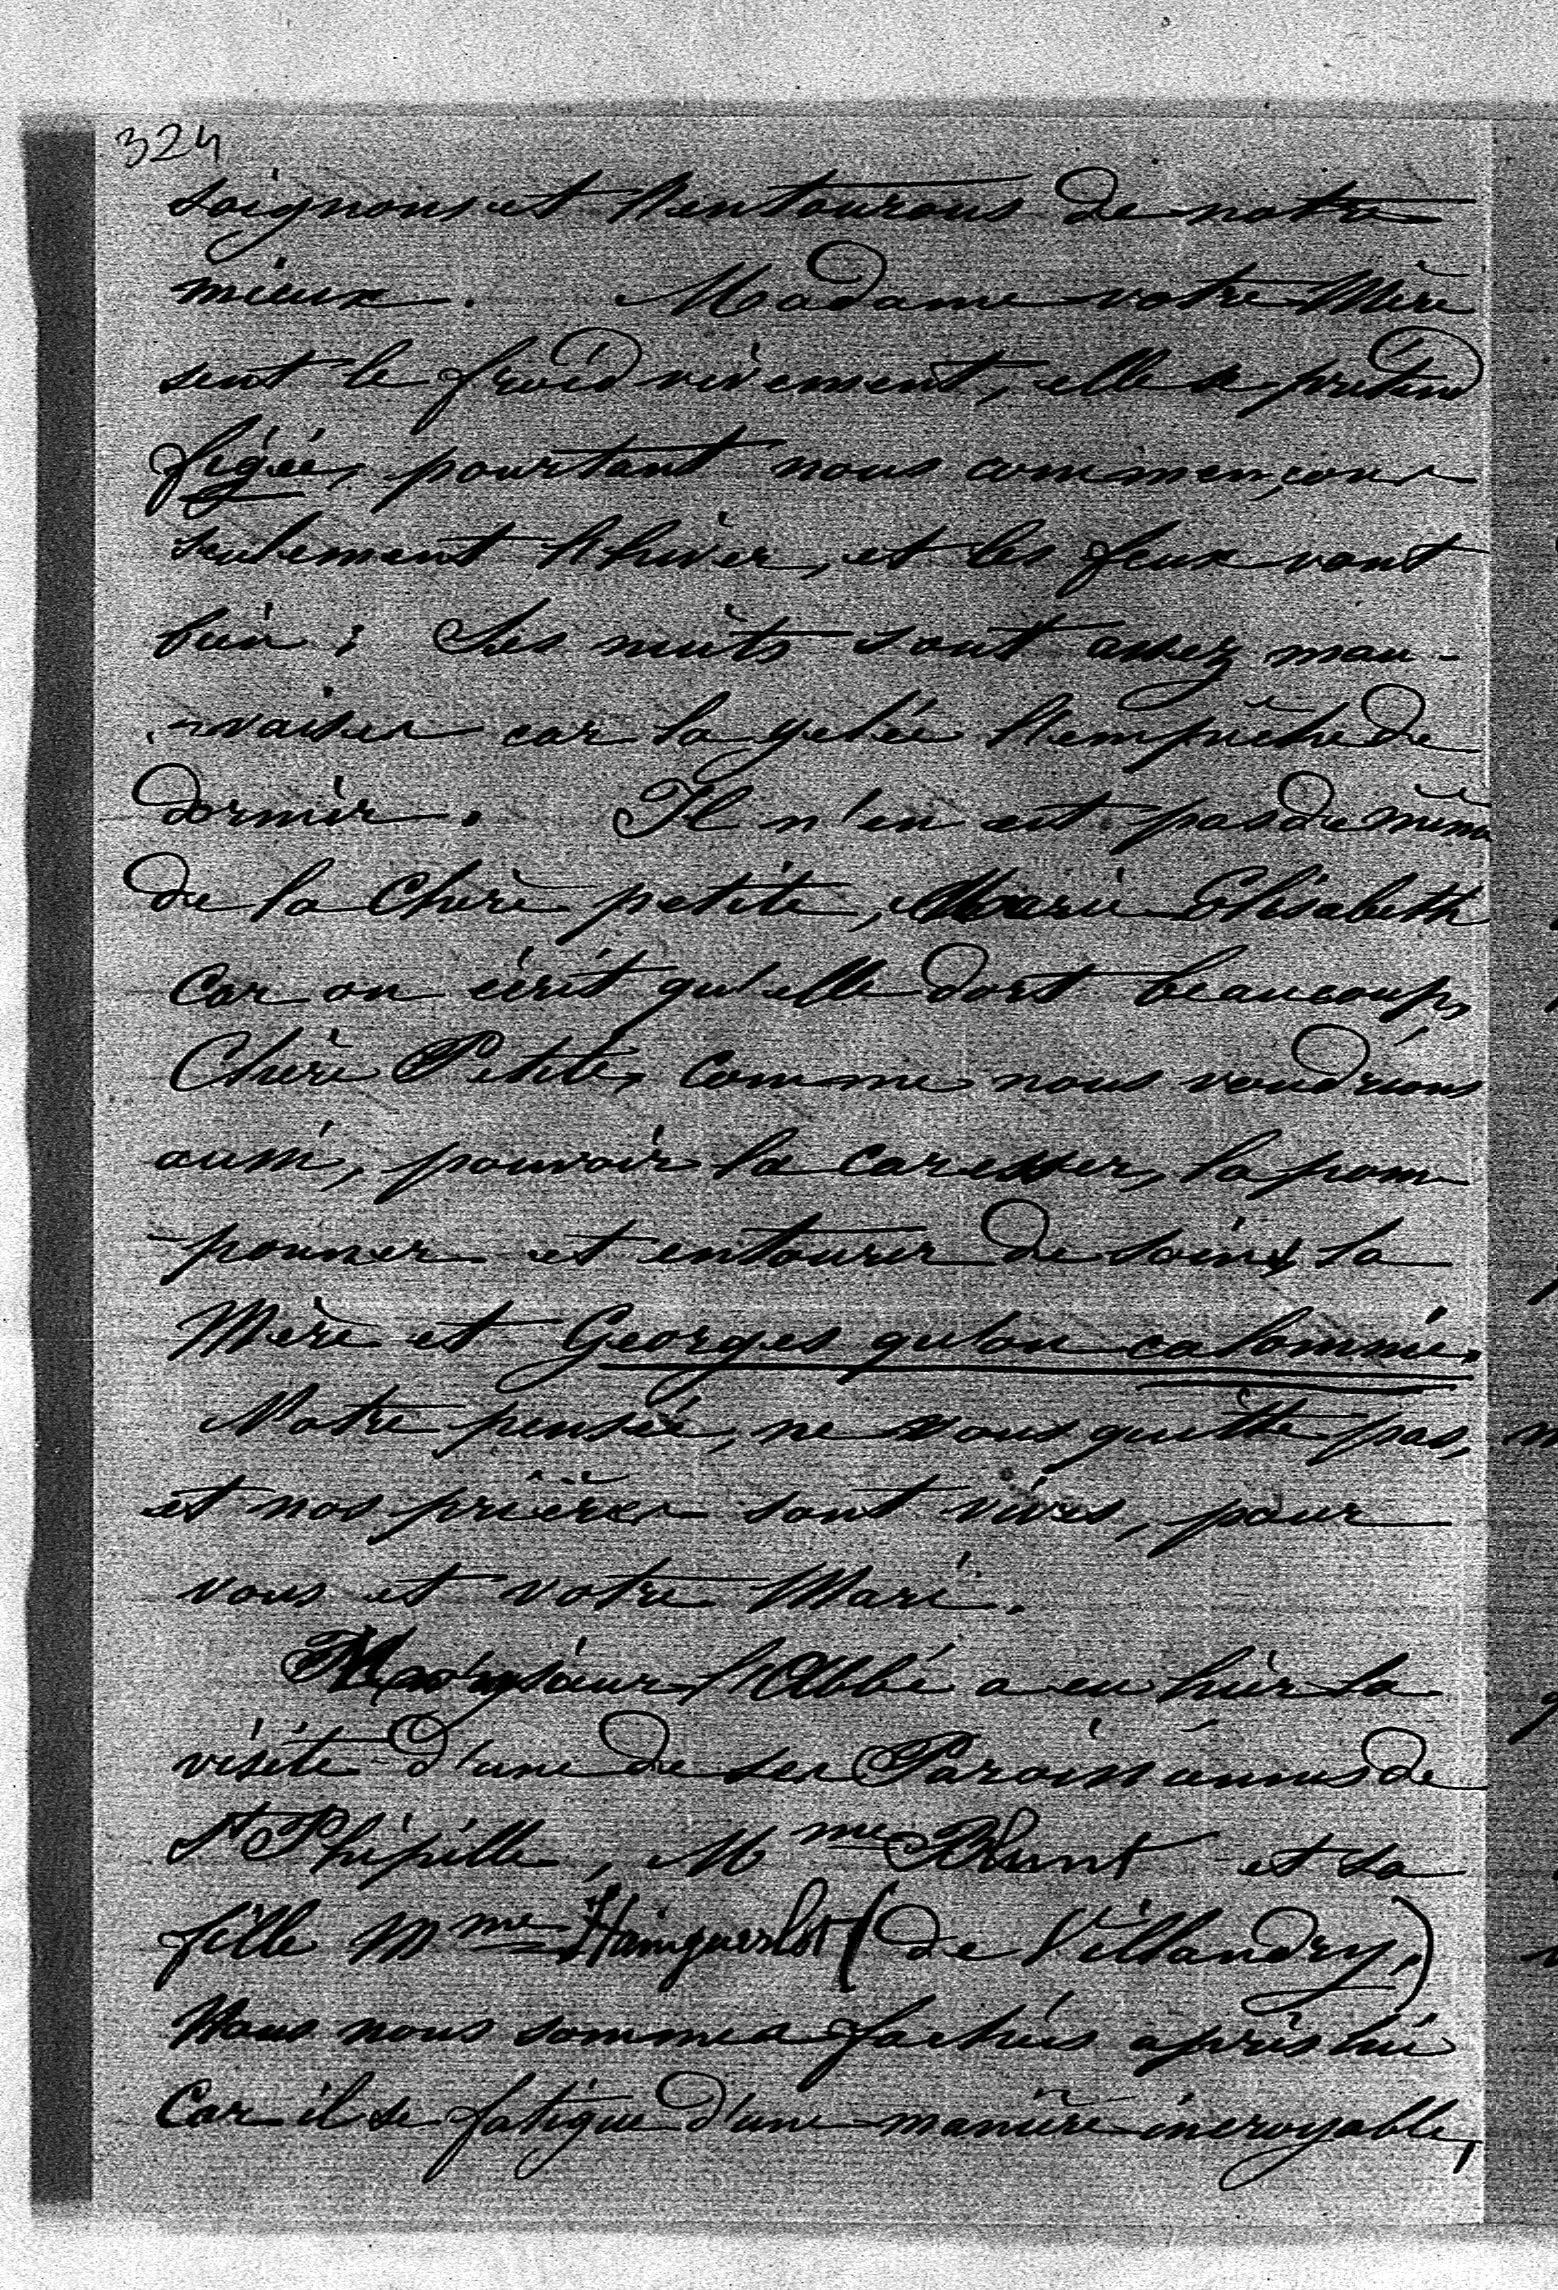 324
soignons et l'entourons de notre
mieux. Madame votre Mère
sent le froid vivement, elle se prétend
figée, pourtant nous commençons
seulement l'hiver, et les feux vont
bien ; Ses nuits sont assez mau-
-vaises car la gelée l'empêche de
dormir. Il n'en est pas de même
de la Chère petite, Marie Elisabeth
car on écrit qu'elle dort beaucoup,
Chère Petite, comme nous voudrions
aussi, pouvoir la caresser, la pom
-ponner et entourer de soins, sa
Mère et Georges qu'on calomnie.
Notre pensée, ne vous quitte pas,
et nos prières sont vives, pour
vous et votre Mari.
Monsieur l'Abbé a eu hier la
visite d'une de ses Paroissiennes de
St Phipille, Mme Blunt et sa
fille Mme Hainguerlot (de Villandry,)
Nous nous sommes fachées après lui
Car il se fatigue d'une manière incroyable,